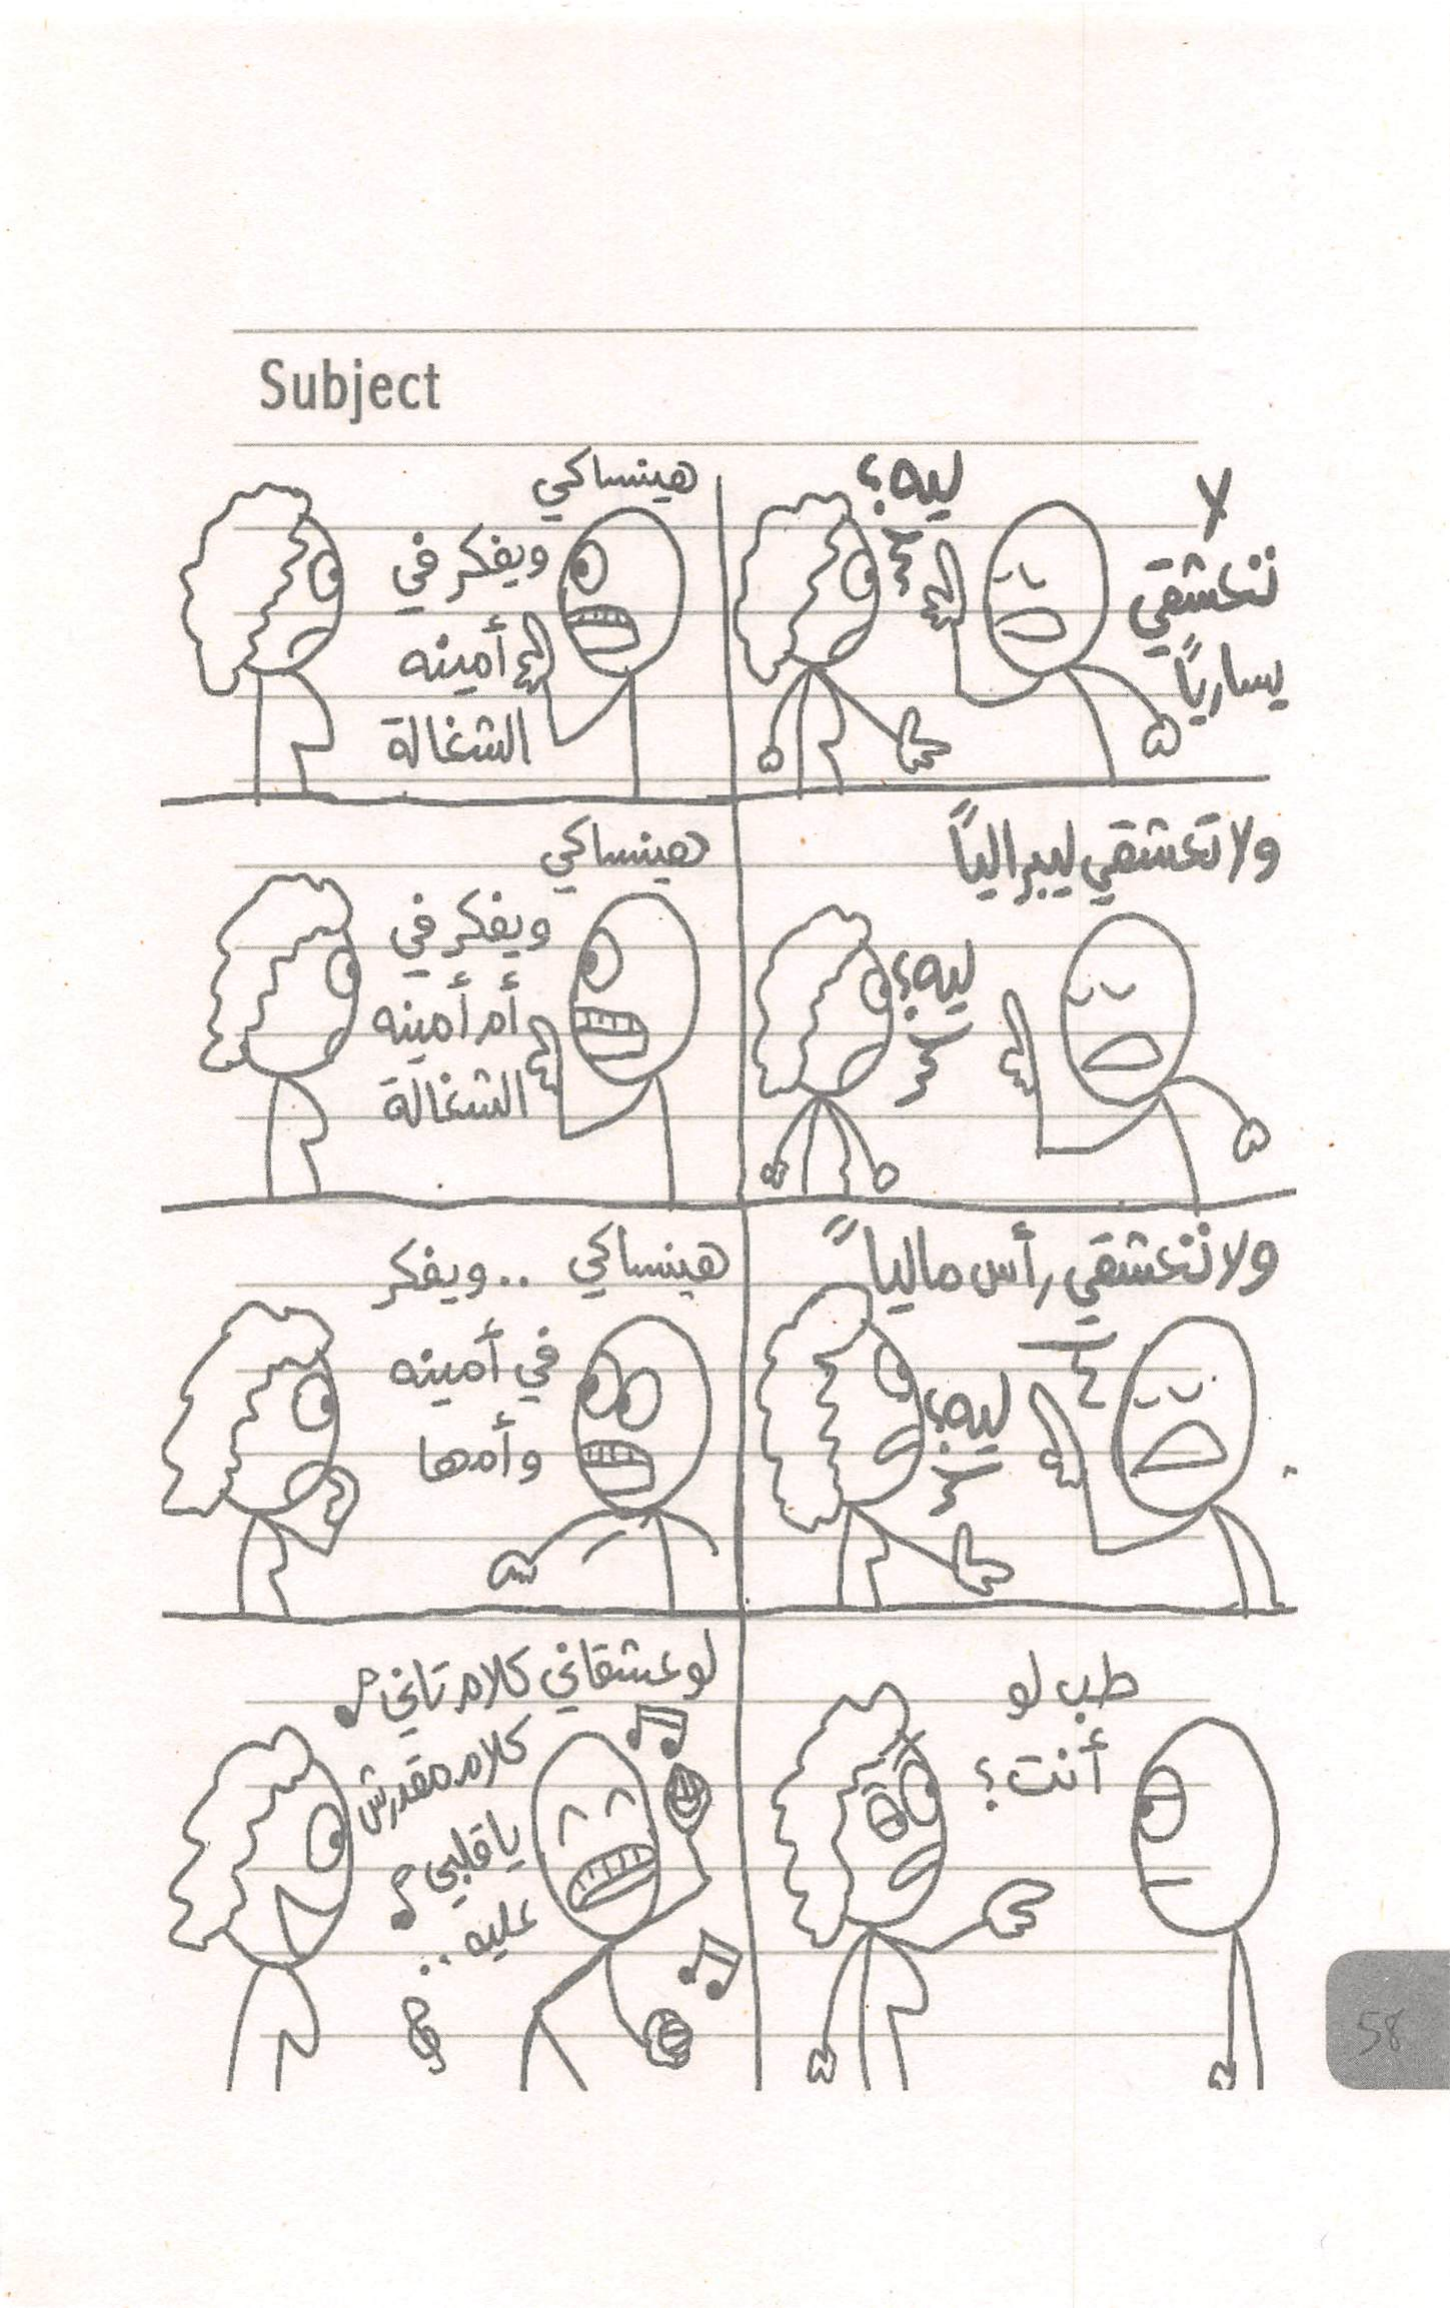 Subject
ليه؟
لا
تعشقي
يسارياً
هينساكي
ويفكر في
أمينه
الشغالة
ولا تعشقي ليبرالياً
ليه؟
هينساكي
ويفكر في
أم أمينه
الشغالة
ولا تعشقي رأس مالياً
ليه؟
هينساكي .. ويفكر
في أمينه
وأمها
طب لو
أنت؟
لو عشقاني كلام تاني
كلام مقدرش
يا قلبي
عليه ..
58